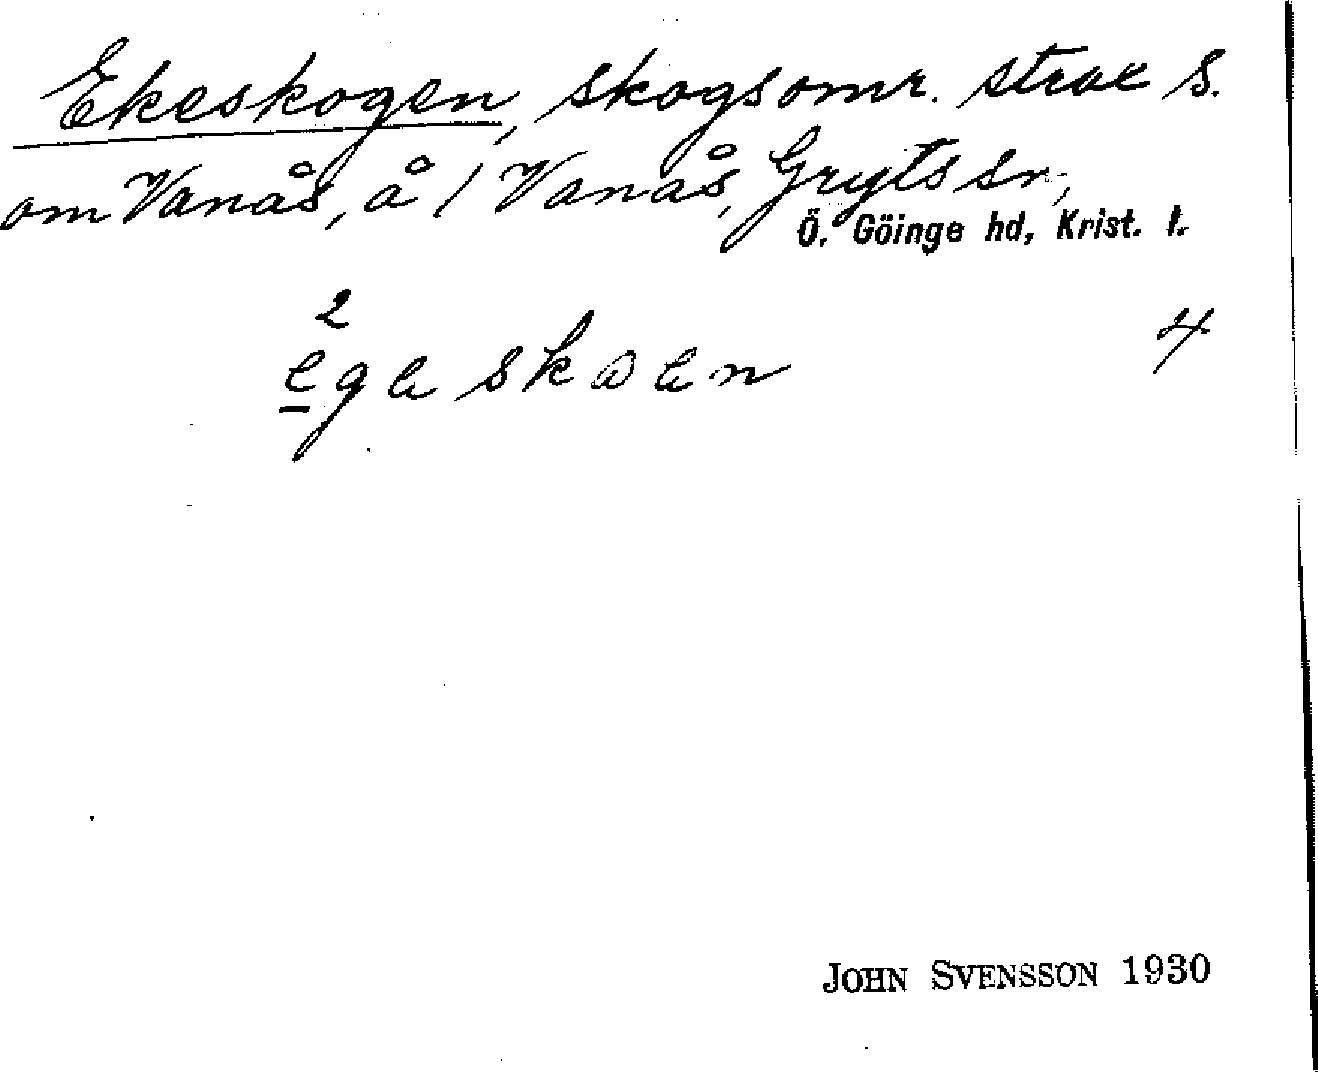 Ekeskogen, skogsomr. strax S.
om Vanås, å 1 Vanås, Gryts sn,
Ö. Göinge hd, Krist. l.
2
egeskoen
4
JOHN SVENSSON 1930